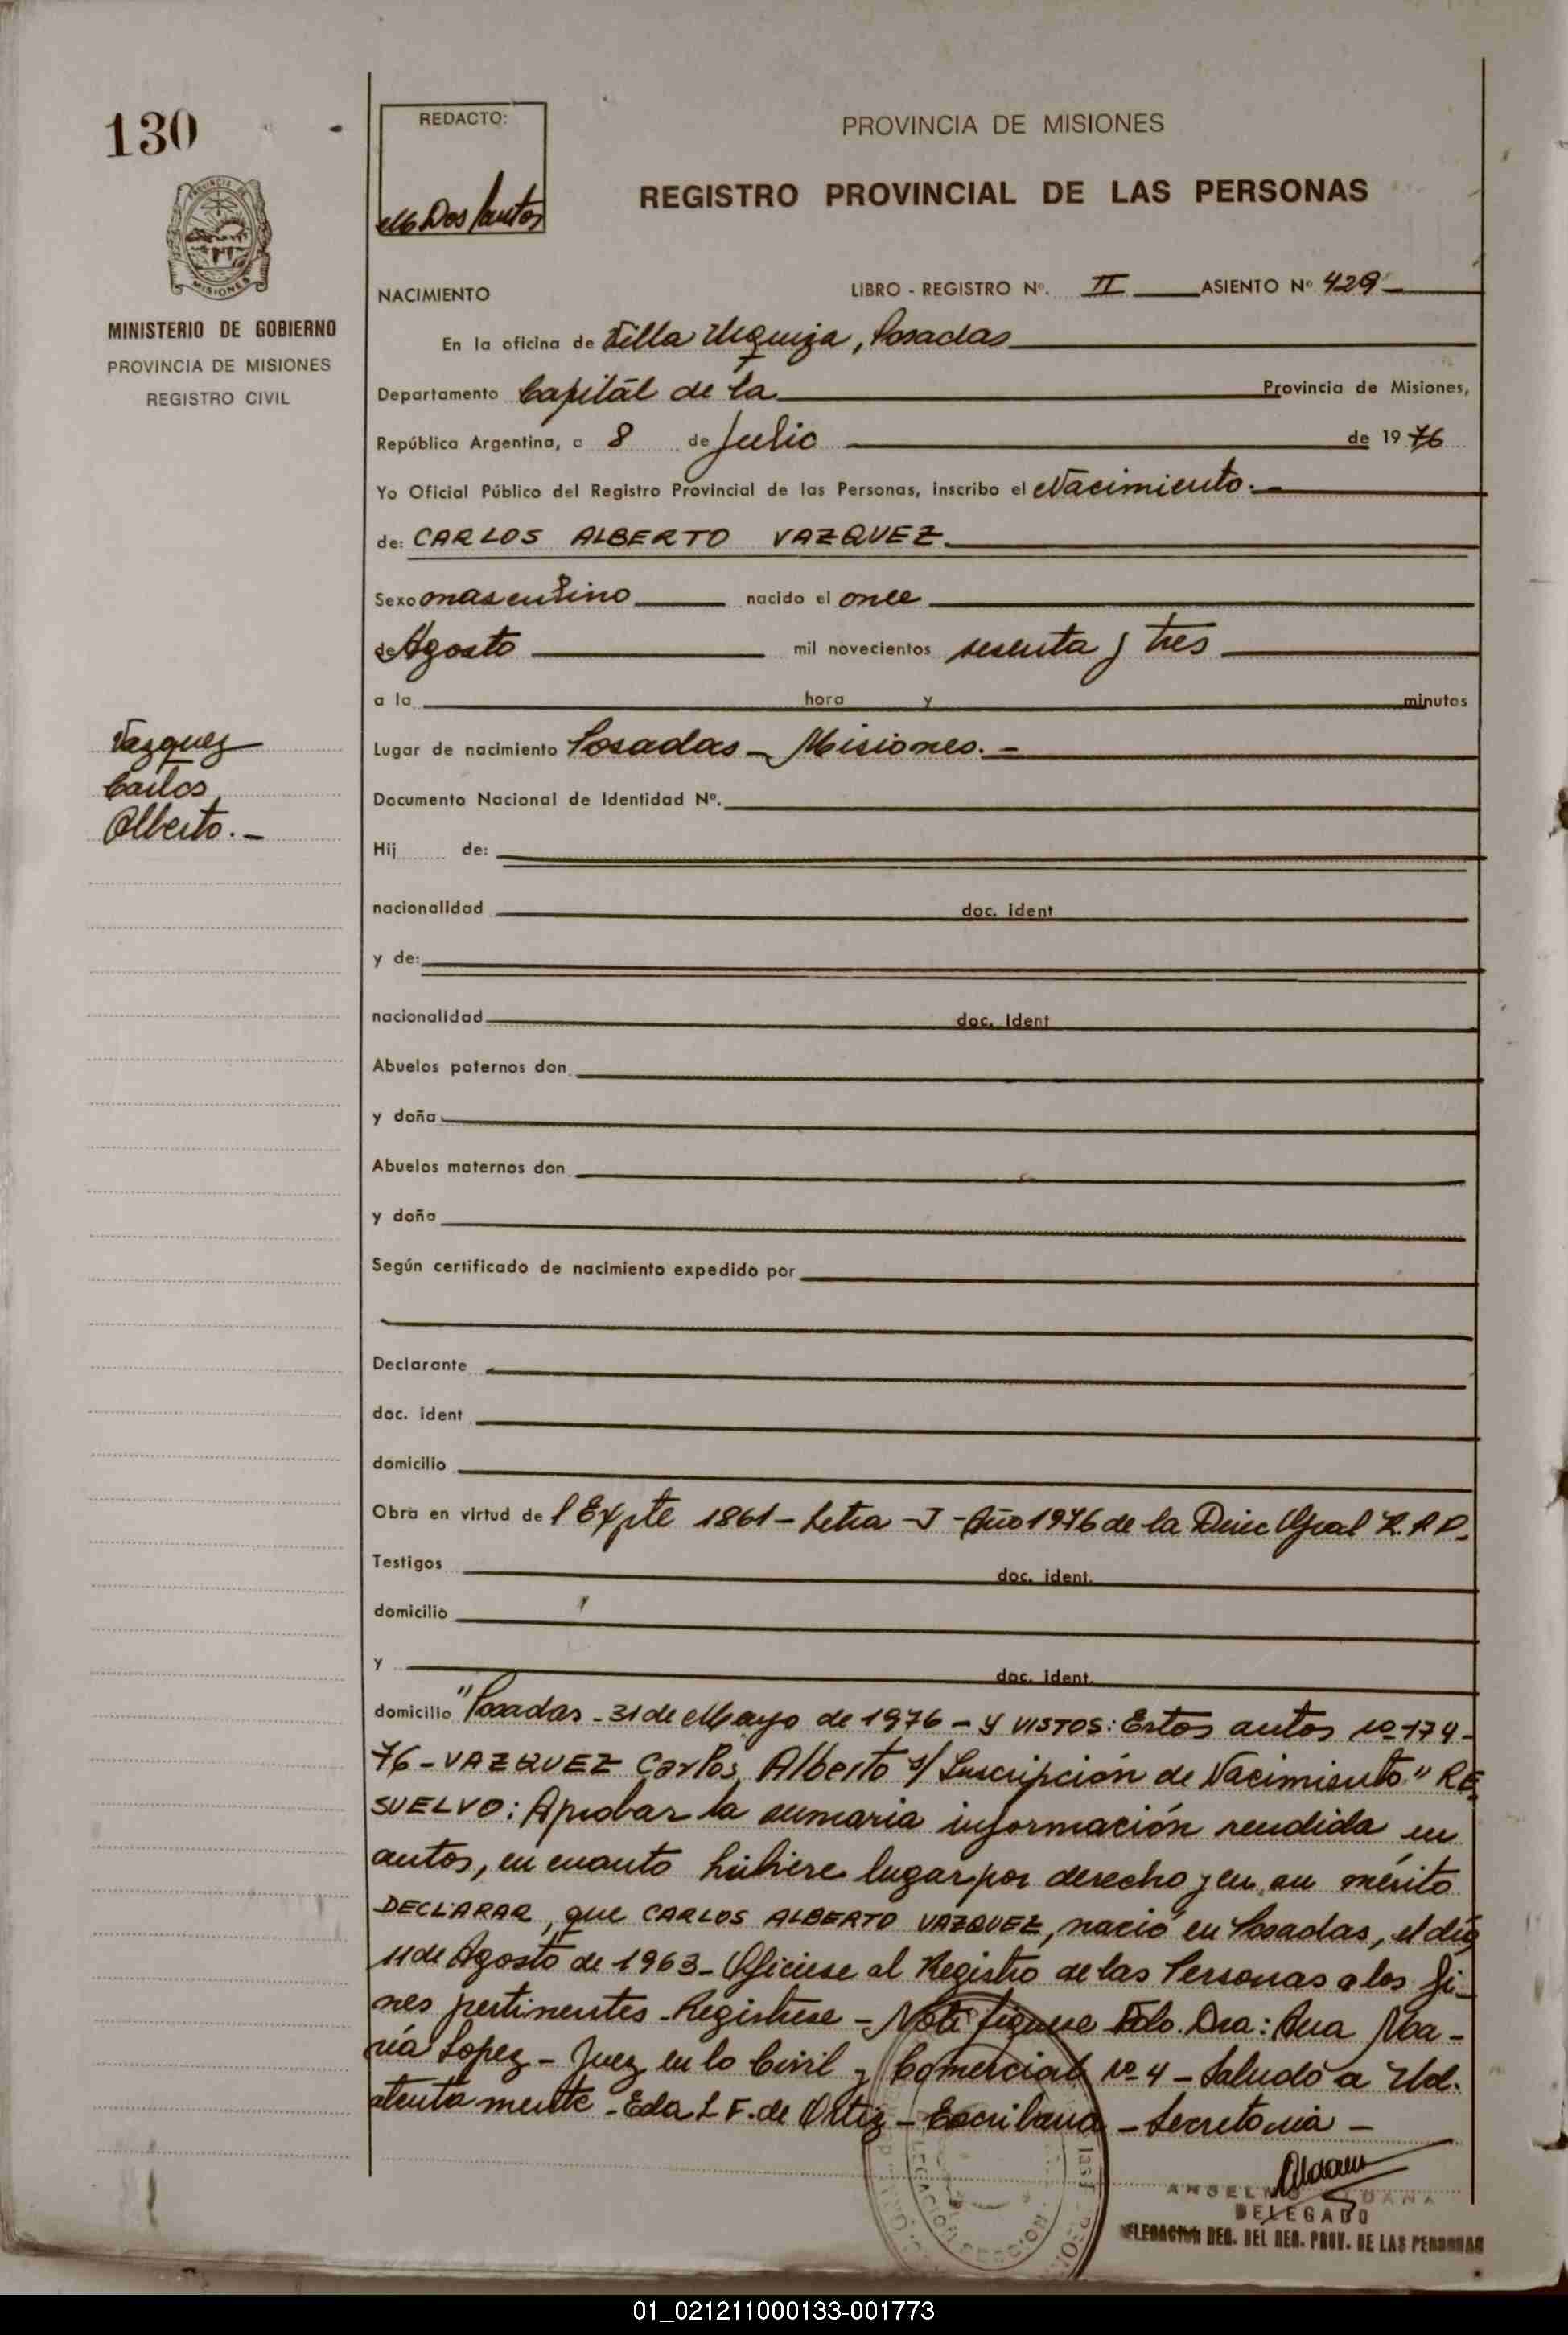 130
REDACTO:
PROVINCIA DE MISIONES
REGISTRO PROVINCIAL DE LAS PERSONAS
MISIONES
MINISTERIO DE GOBIERNO
PROVINCIA DE MISIONES
REGISTRO CIVIL
Dos Santos
NACIMIENTO LIBRO - REGISTRO Nº. II ASIENTO Nº 429
En la oficina de Villa Urquiza, Posadas
Departamento Capitál de la Provincia de Misiones,
República Argentina, a 8 de Julio de 1976
Yo Oficial Público del Registro Provincial de las Personas, inscribo el Nacimiento.-
de: CARLOS ALBERTO VAZQUEZ.
Sexo masculino nacido el once
de Agosto mil novecientos sesenta y tres
a la hora y minutos
Vazquez
Carlos
Alberto.-
Lugar de nacimiento Posadas - Misiones.-
Documento Nacional de Identidad Nº.
Hij de:
nacionalidad doc. ident
y de:
nacionalidad doc. ident
Abuelos paternos don
y doña
Abuelos maternos don
y doña
Según certificado de nacimiento expedido por
Declarante
doc. ident
domicilio
Obra en virtud de l Expte 1861 - Letra - J - Año 1976 de la Direc Gral R.P.P.
Testigos doc. ident.
domicilio
y doc. ident.
domicilio "Posadas - 31 de Mayo de 1976 - Y VISTOS: Estos autos nº 174-
76 - VAZQUEZ Carlos, Alberto s/ Inscripción de Nacimiento." RE
SUELVO: Aprobar la sumaria información rendida en
autos, en cuanto hubiere lugar por derecho y en su mérito
DECLARAR, que CARLOS ALBERTO VAZQUEZ, nació en Posadas, el día
11 de Agosto de 1963 - Ofíciese al Registro de las Personas a los fi-
nes pertinentes - Regístrese - Notifíquese Fdo. Dra: Ana Ma-
ría Lopez - Juez en lo Civil y Comercial nº 4 - Saludo a Ud.
atenta mente - Eda L F. de Ortiz - Escribana - Secretaria -
DELEGADO
DELEGACION REG. DEL REG. PROV. DE LAS PERSONAS
01_021211000133-001773